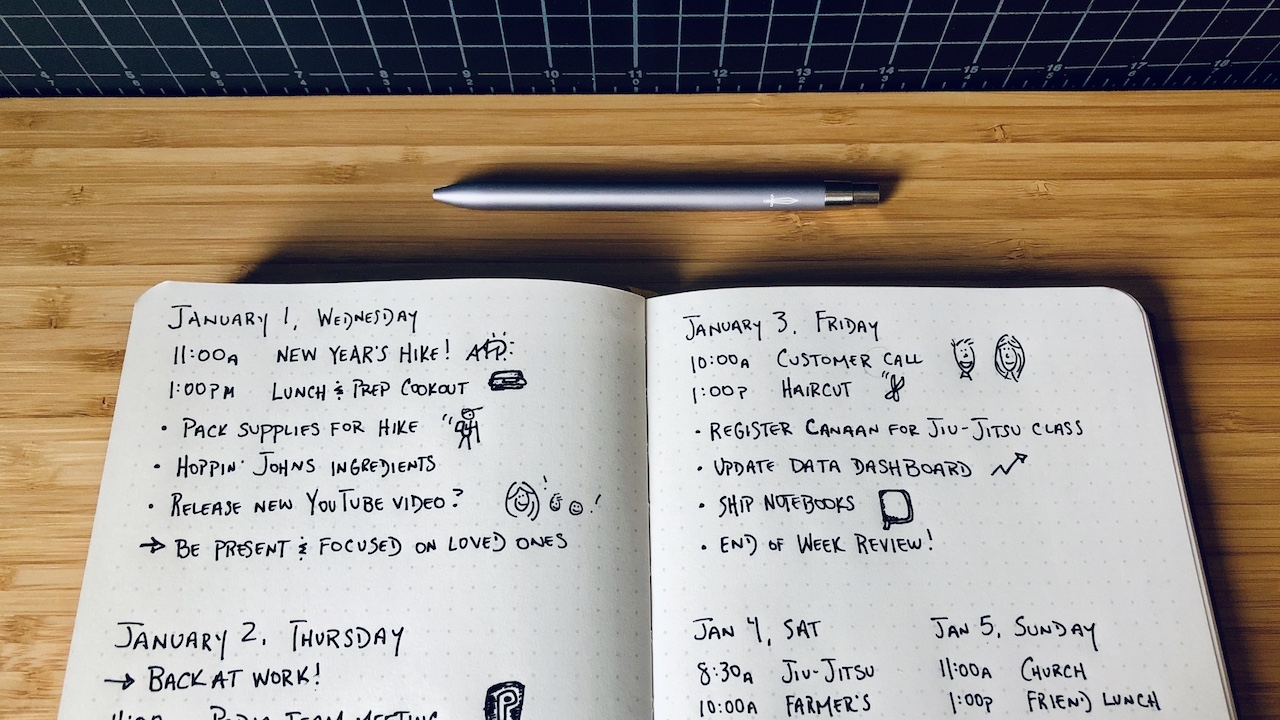 4 5 6 7 8 9 10 11 12 13 14 15 16 17 18
JANUARY 1, WEDNESDAY
11:00A NEW YEAR'S HIKE!
1:00PM LUNCH & PREP COOKOUT
• PACK SUPPLIES FOR HIKE
• HOPPIN' JOHNS INGREDIENTS
• RELEASE NEW YOUTUBE VIDEO?
→ BE PRESENT & FOCUSED ON LOVED ONES
JANUARY 2, THURSDAY
→ BACK AT WORK!
TEAM MEETING
JANUARY 3, FRIDAY
10:00A CUSTOMER CALL
1:00P HAIRCUT
• REGISTER CANAAN FOR JIU-JITSU CLASS
• UPDATE DATA DASHBOARD
• SHIP NOTEBOOKS
• END OF WEEK REVIEW!
JAN 4, SAT
8:30A JIU-JITSU
10:00A FARMER'S
JAN 5, SUNDAY
11:00A CHURCH
1:00P FRIEND LUNCH